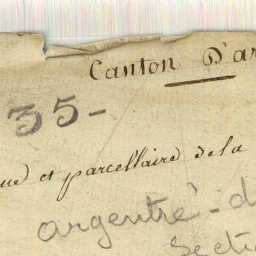 Canton D'ar
35-
que et parcellaire de la
argentré-d
Secti